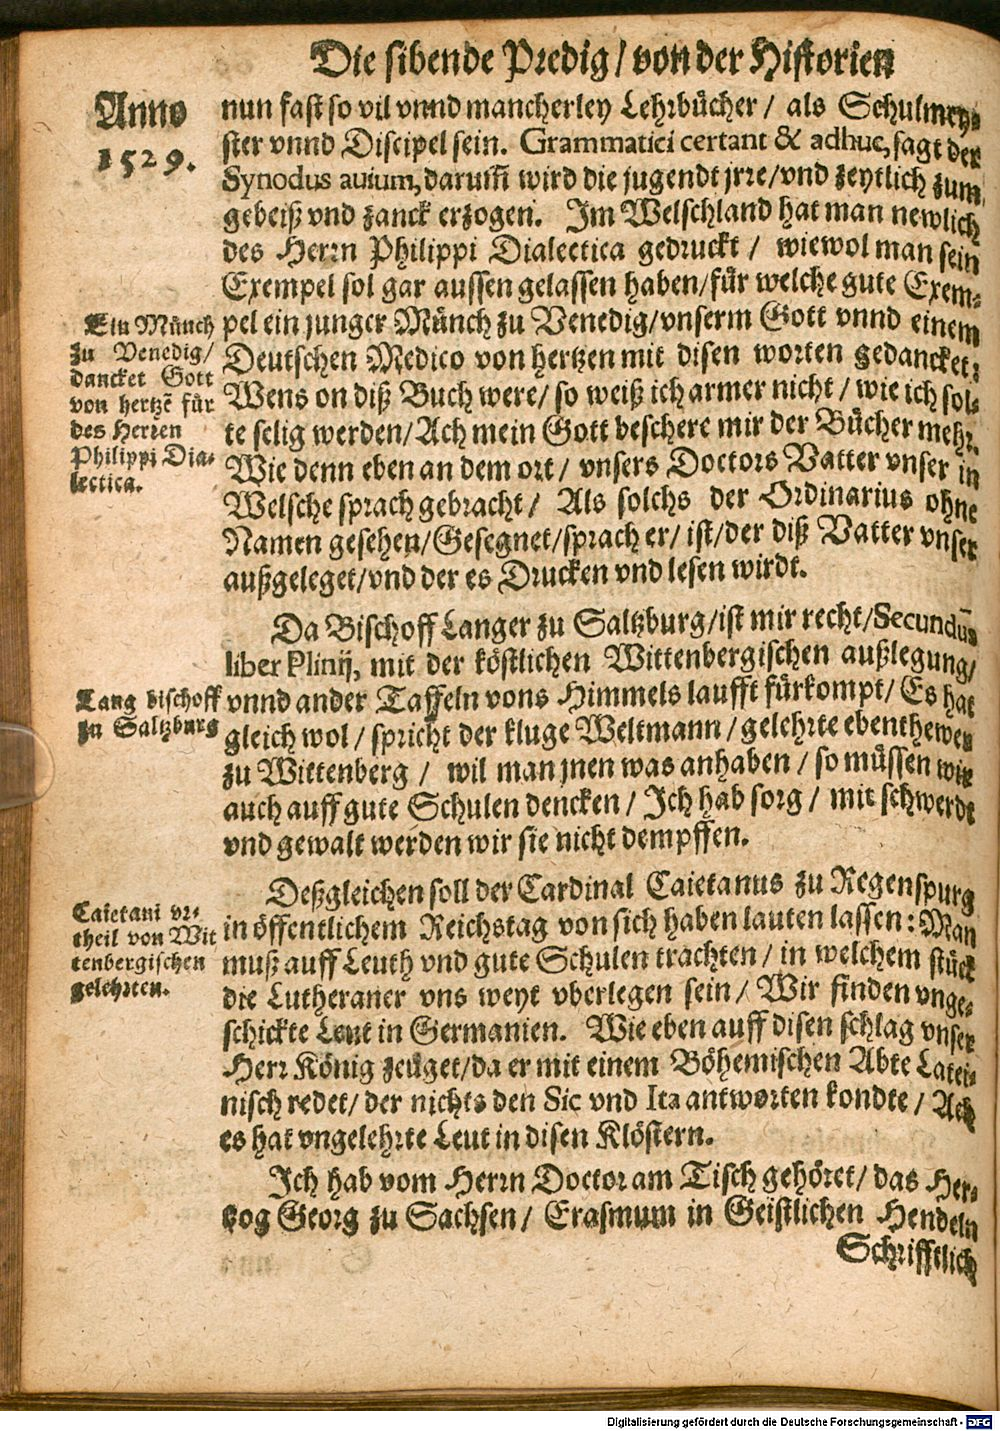 Die sibende Predig / von der Historien
Anno
1529.
nun fast so vil vnnd mancherley Lehrbücher / als Schulmey-
ster vnnd Discipel sein. Grammatici certant & adhuc, sagt der
Synodus auium, darum̃ wird die jugendt jrre / vnd zeytlich zum
gebeiß vnd zanck erzogen. Im Welschland hat man newlich
des Herrn Philippi Dialectica gedruckt / wiewol man sein
Exempel sol gar aussen gelassen haben / für welche gute Exem-
pel ein junger Münch zu Venedig / vnserm Gott vnnd einem
Deutschen Medico von hertzen mit disen worten gedancket:
Wens on diß Buch were / so weiß ich armer nicht / wie ich sol-
te selig werden / Ach mein Gott beschere mir der Bücher mehr.
Wie denn eben an dem ort / vnsers Doctors Vatter vnser in
Welsche sprach gebracht / Als solchs der Ordinarius ohne
Namen gesehen / Gesegnet / sprach er / ist / der diß Vatter vnser
außgeleget / vnd der es Drucken vnd lesen wirdt.
Ein Münch
zu Venedig /
dancket Gott
von hertzẽ für
des Herren
Philippi Dia-
lectica.
Da Bischoff Langer zu Saltzburg / ist mir recht / Secundũ
liber Plinij, mit der köstlichen Wittenbergischen außlegung /
vnnd ander Taffeln vons Himmels laufft fürkompt / Es hat
gleich wol / spricht der kluge Weltmann / gelehrte ebenthewer
zu Wittenberg / wil man jnen was anhaben / so müssen wir
auch auff gute Schulen dencken / Ich hab sorg / mit schwerdt
vnd gewalt werden wir sie nicht dempffen.
Lang bischoff
zu Saltzburg
Deßgleichen soll der Cardinal Caietanus zu Regenspurg
in öffentlichem Reichstag von sich haben lauten lassen: Man
muß auff Leuth vnd gute Schulen trachten / in welchem stück
die Lutheraner vns weyt vberlegen sein / Wir finden vnge-
schickte Leut in Germanien. Wie eben auff disen schlag vnser
Herr König zeüget / da er mit einem Böhemischen Abte Latei-
nisch redet / der nichts den Sic vnd Ita antworten kondte / Ach
es hat vngelehrte Leut in disen Klöstern.
Caietani vr-
theil von Wit
tenbergischen
gelehrten.
Ich hab vom Herrn Doctor am Tisch gehöret / das Her-
tzog Georg zu Sachsen / Erasmum in Geistlichen Hendeln
Schrifftlich
Digitalisierung gefördert durch die Deutsche Forschungsgemeinschaft - DFG